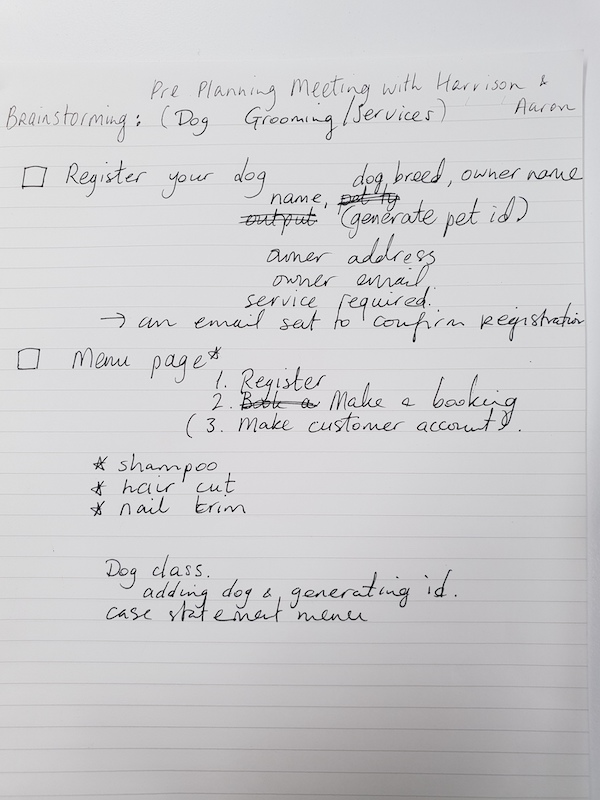 Pre Planning Meeting with Harrison &
Brainstorming: (Dog Grooming/Services) Aaron
Register your dog dog breed, owner name
name, pet ty
output (generate pet id)
owner address
owner email
service required.
→ an email set to confirm registration
Menu page*
1. Register
2. Book a Make a booking
(3. Make customer account).
* shampoo
* hair cut
* nail trim
Dog class.
adding dog & generating id.
case statement menu